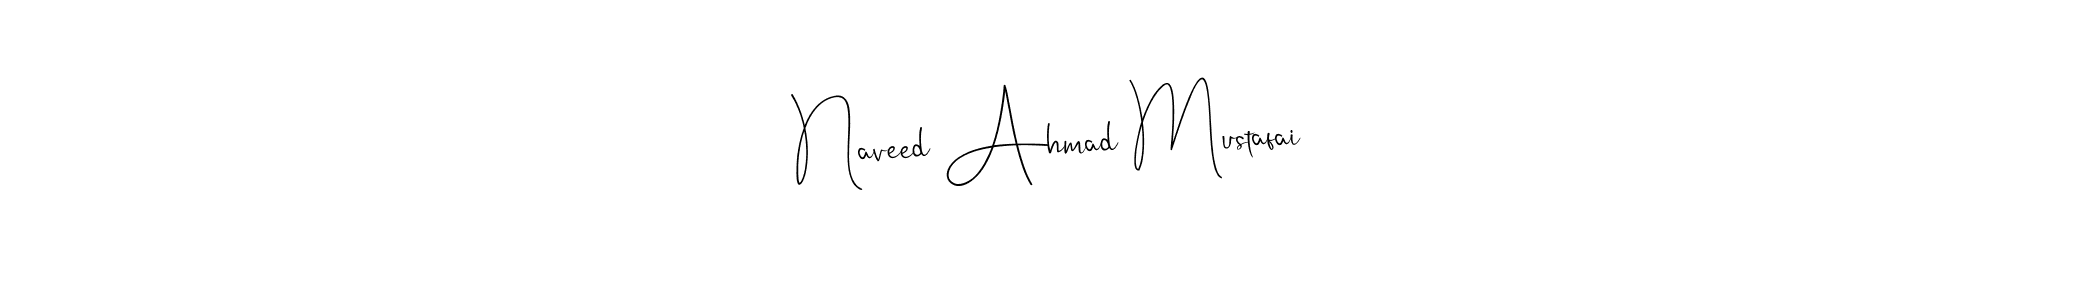 Naveed Ahmad Mustafai